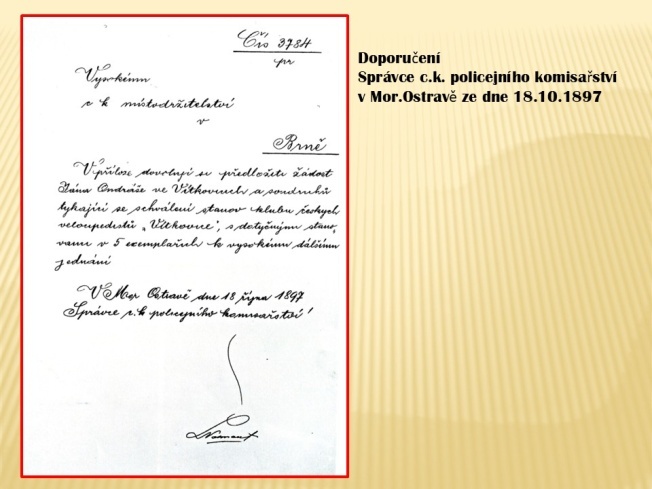 Čís 3784
pr
Vysokému
c k místodržitelství
v
Brně
V příloze dovoluji si předložiti žádost
Jána Ondráše ve Vítkovicích a soudruhů
týkající se schválení stanov klubu českých
velocipedistů „Vítkovice", s dotyčnými stano„
vami v 5 exemplařích k vysokému dalšímu
jednání
V Mor Ostravě dne 18 října 1897
Správce c.k policejního komisařství!
Doporučení
Správce c.k. policejního komisařství
v Mor.Ostravě ze dne 18.10.1897